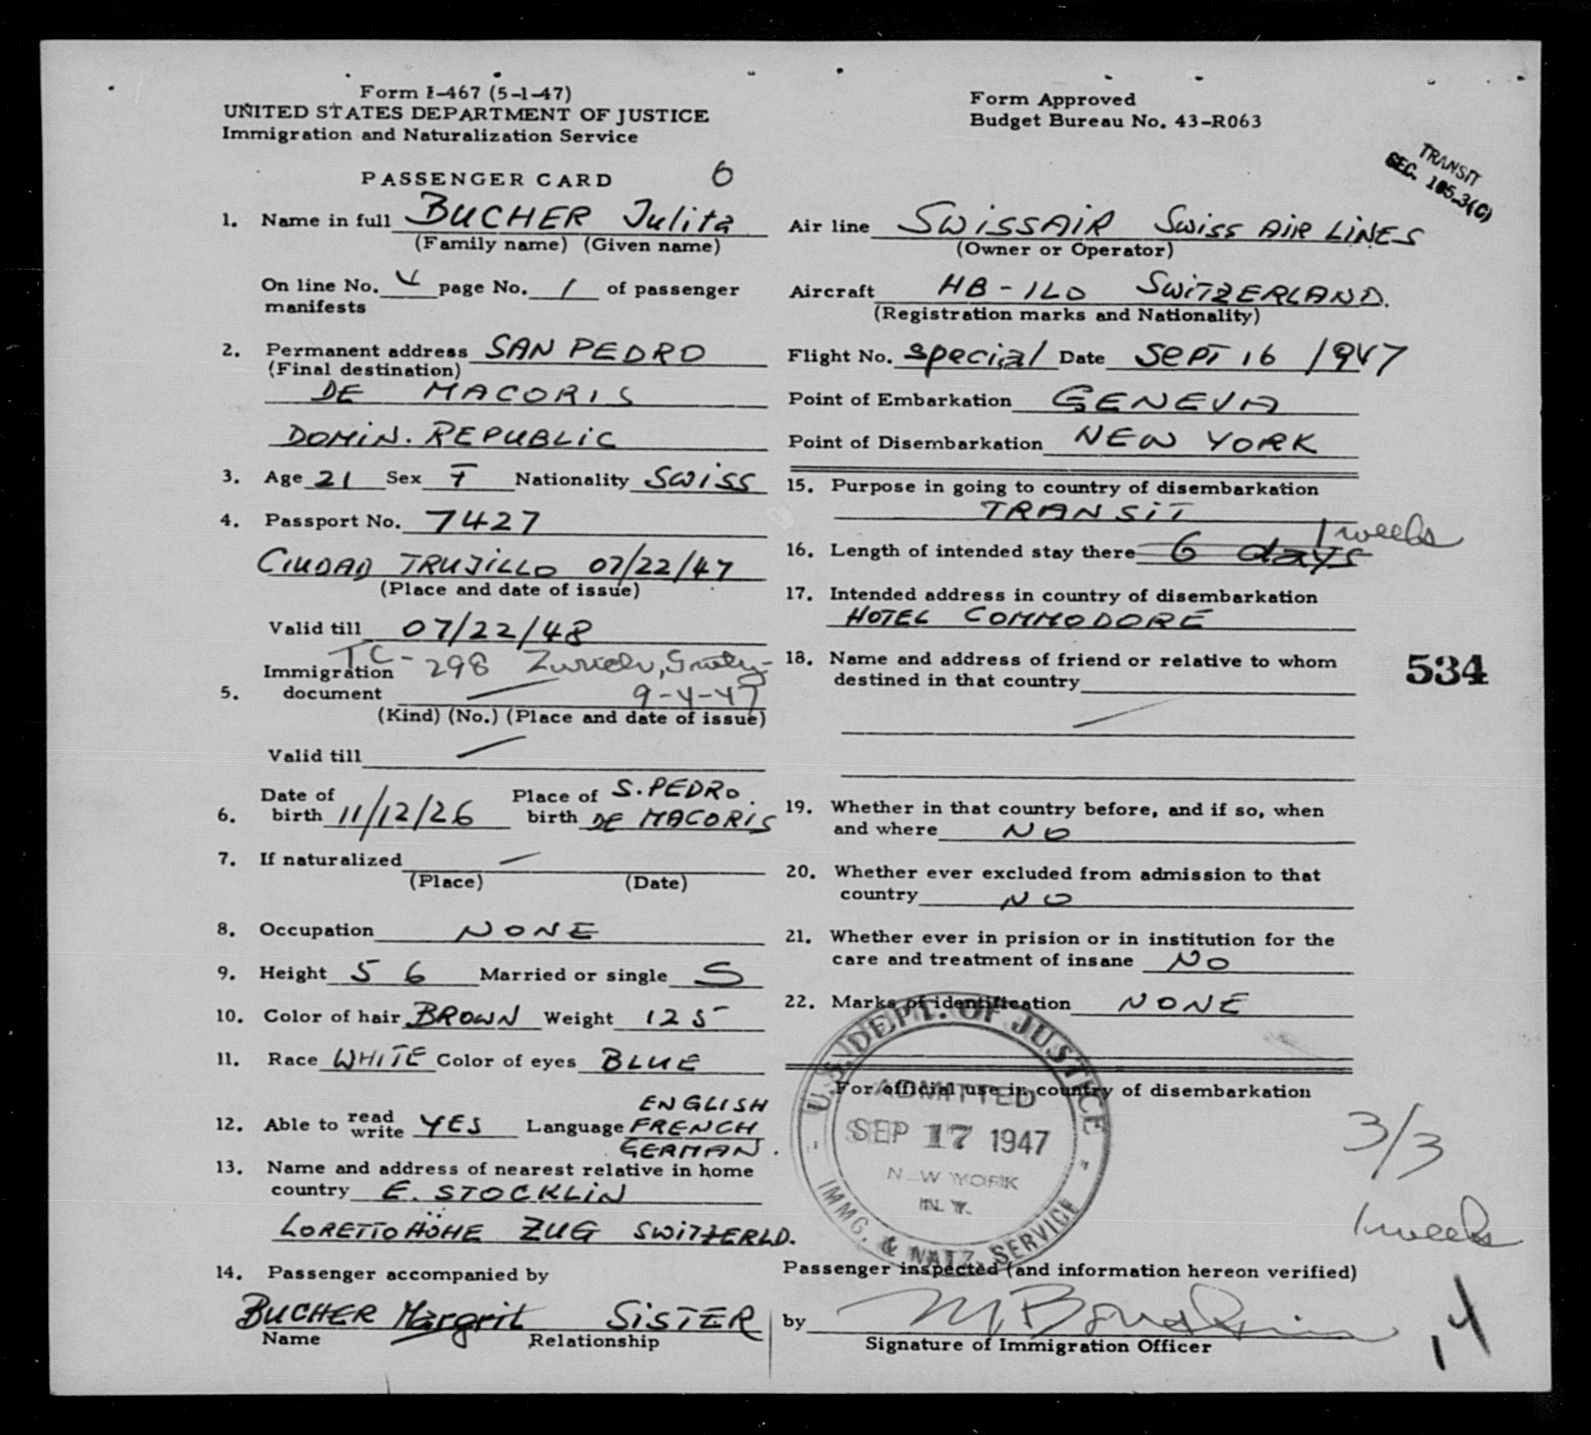 Form I-467 (5-1-47)
UNITED STATES DEPARTMENT OF JUSTICE
Immigration and Naturalization Service
Form Approved
Budget Bureau No. 43-R063
TRANSIT
SEC. 105.3(C)
PASSENGER CARD 6
1. Name in full BUCHER Julita
(Family name) (Given name)
On line No. 4 page No. 1 of passenger
manifests
2. Permanent address SAN PEDRO
(Final destination)
DE MACORIS
DOMIN. REPUBLIC
3. Age 21 Sex F Nationality SWISS
4. Passport No. 7427
CIUDAD TRUJILLO 07/22/47
(Place and date of issue)
Valid till 07/22/48
TC-298 Zurich,
Immigration
5. document 9-4-47
(Kind) (No.) (Place and date of issue)
Valid till
6. Date of birth 11/12/26 Place of birth S. PEDRO. DE MACORIS
7. If naturalized
(Place) (Date)
8. Occupation NONE
9. Height 5 6 Married or single S
10. Color of hair BROWN Weight 125
11. Race WHITE Color of eyes BLUE
12. Able to read write YES Language ENGLISH FRENCH GERMAN.
13. Name and address of nearest relative in home
country E. STOCKLIN
LORETTOHÖHE ZUG SWITZERLD.
14. Passenger accompanied by
BUCHER Margrit SISTER
Name Relationship
Air line SWISSAIR Swiss AIR LINES
(Owner or Operator)
Aircraft HB-ILO SWITZERLAND.
(Registration marks and Nationality)
Flight No. special Date SEPT 16 1947
Point of Embarkation GENEVA
Point of Disembarkation NEW YORK
15. Purpose in going to country of disembarkation
TRANSIT
16. Length of intended stay there 6 days 1 weeks
17. Intended address in country of disembarkation
HOTEL COMMODORE
18. Name and address of friend or relative to whom
destined in that country
534
19. Whether in that country before, and if so, when
and where NO
20. Whether ever excluded from admission to that
country NO
21. Whether ever in prision or in institution for the
care and treatment of insane NO
22. Marks of identification NONE
For official use in country of disembarkation
U.S. DEPT. OF JUSTICE
ADMITTED
SEP 17 1947
N W YORK
N. Y.
IMMG. & NATZ. SERVICE
3/3
1 weeks
Passenger inspected (and information hereon verified)
by
Signature of Immigration Officer
14